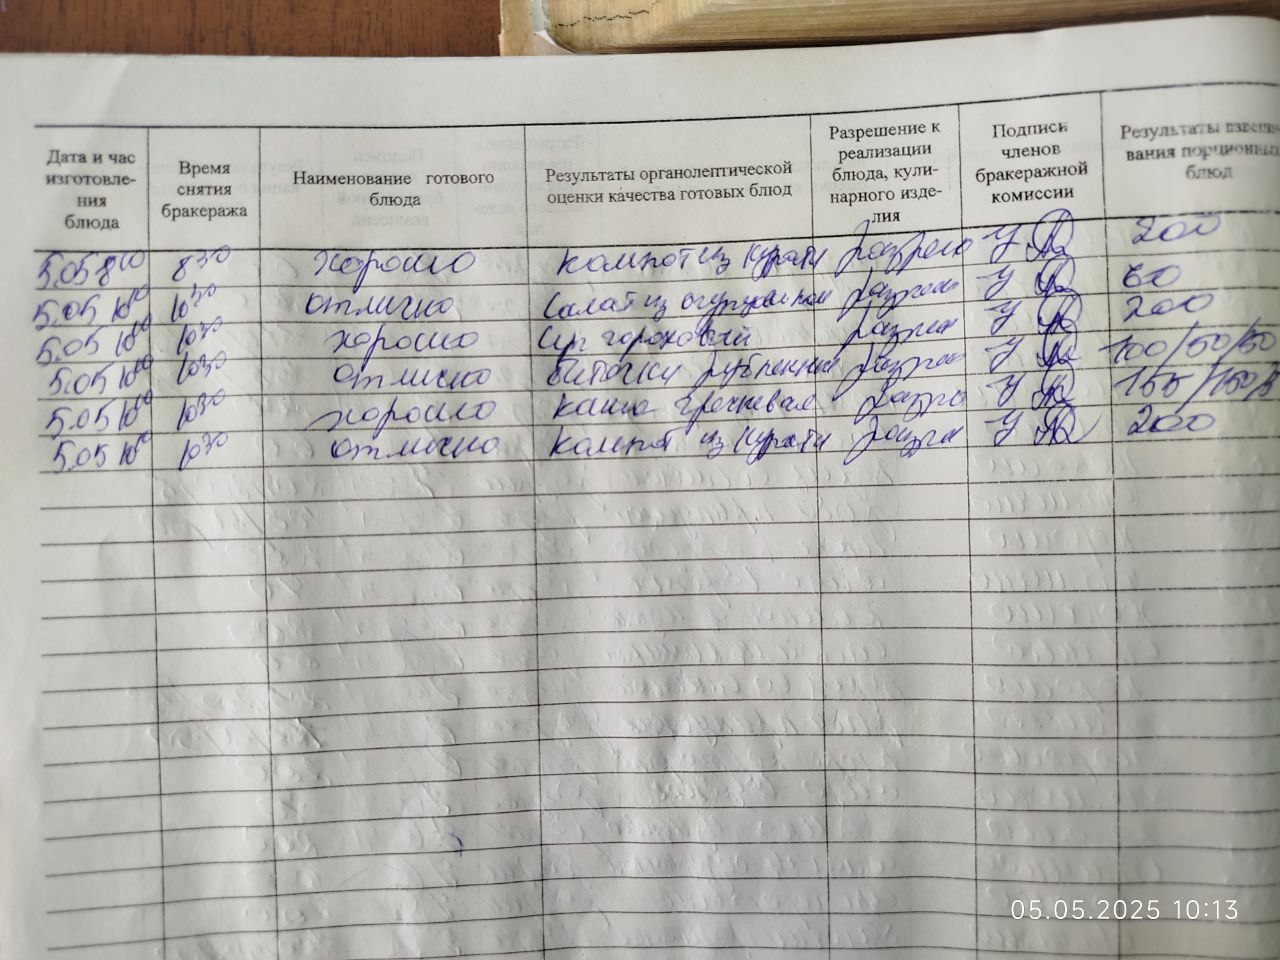 Дата и час изготовле-ния блюда
Время снятия бракеража
Наименование готового блюда
Результаты органолептической оценки качества готовых блюд
Разрешение к реализации блюда, кули-нарного изде-лия
Подписи членов бракеражной комиссии
Результаты взвеши-вания порционных блюд
5.05 8 00 8 30 хорошо компот из кураги разреш 200
5.05 10 00 10 30 отлично Салат из разреш 60
5.05 10 00 10 30 хорошо Суп гороховый разреш 200
5.05 10 00 10 30 отлично биточки рубленные разреш 100/50/50
5.05 10 00 10 30 хорошо каша гречневая разре 155/150/5
5.05 10 00 10 30 отлично компот из кураги разре 200
05.05.2025 10:13